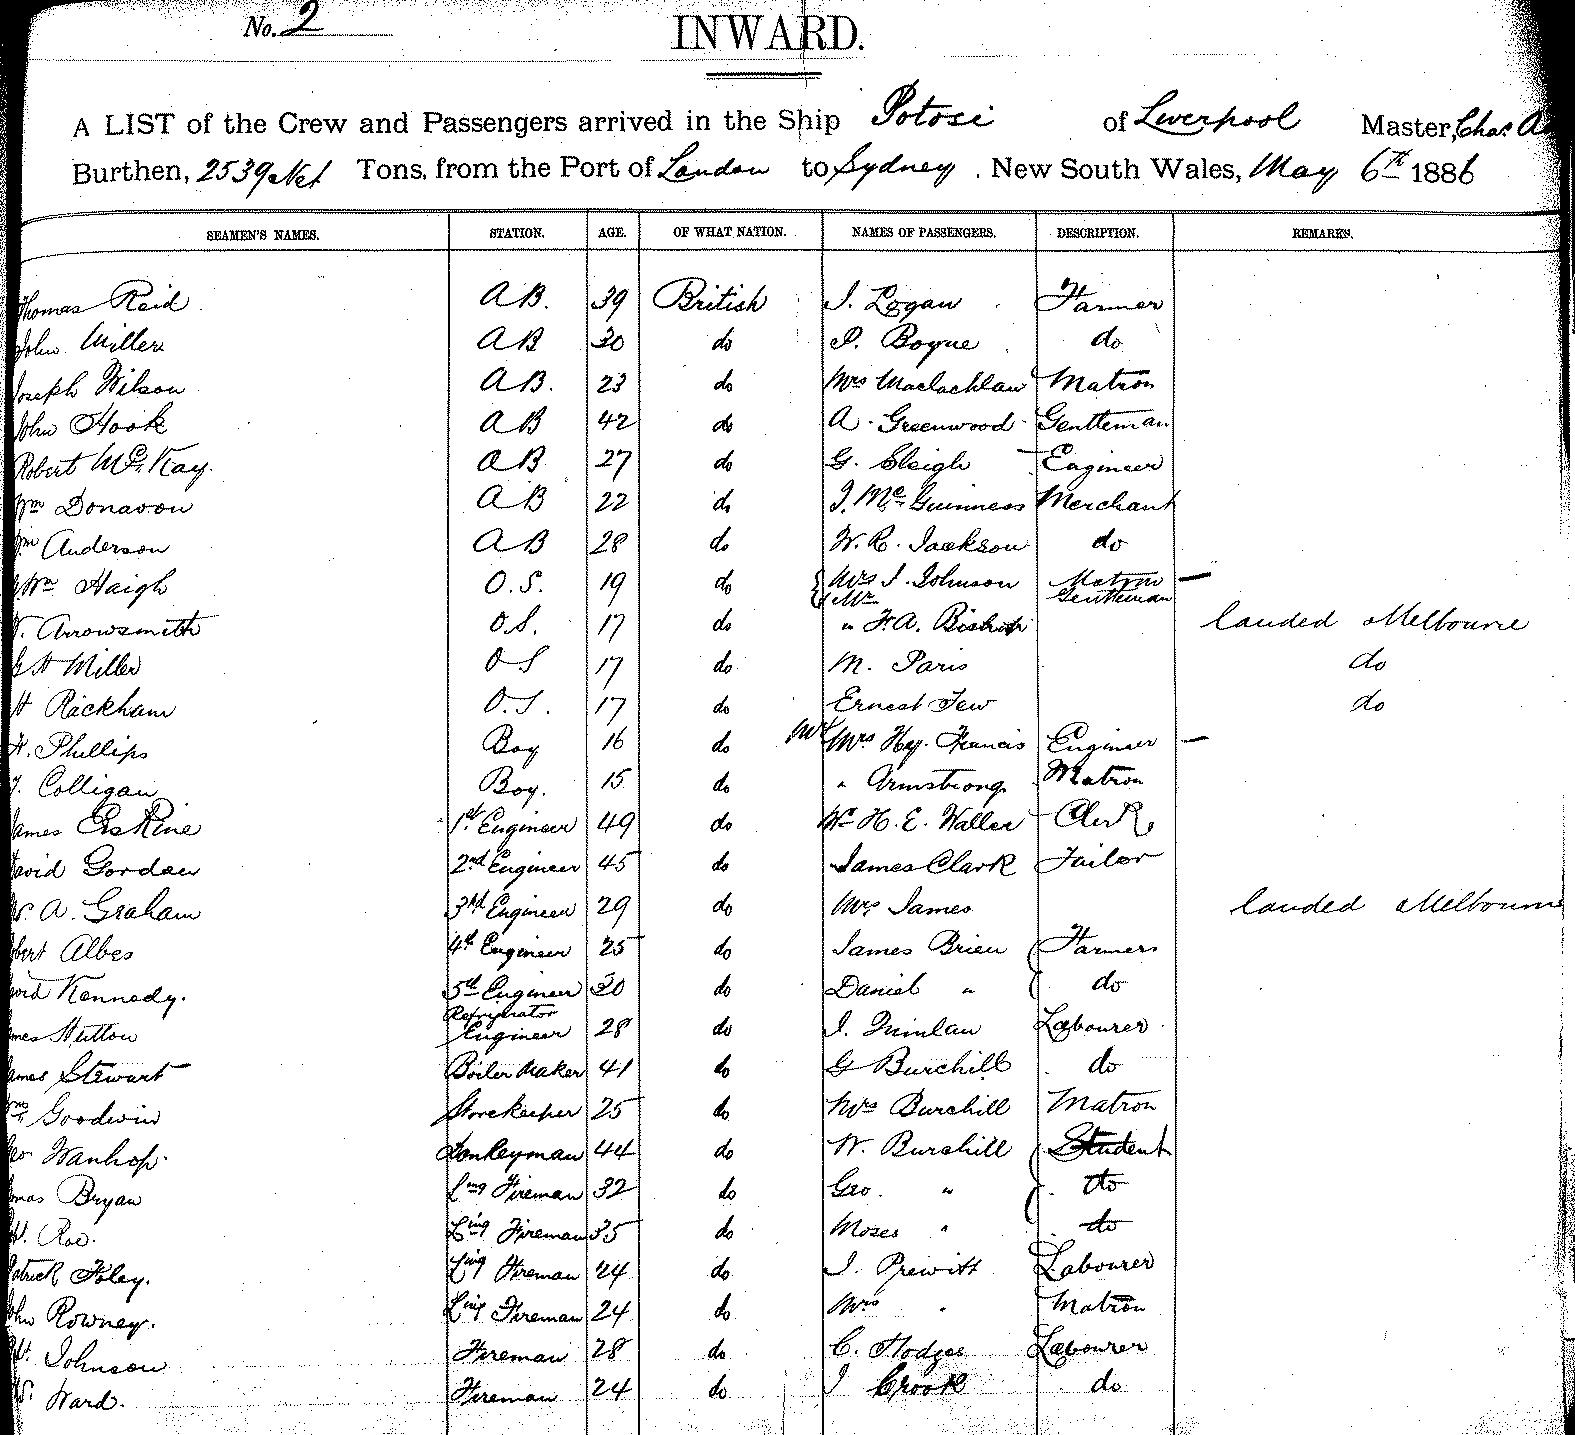 No. 2
INWARD.
A LIST of the Crew and Passengers arrived in the Ship Potosi of Liverpool Master, Chas.
Burthen, 2539 Net Tons, from the Port of London to Sydney, New South Wales, May 6th 1886
SEAMEN'S NAMES. STATION. AGE. OF WHAT NATION. NAMES OF PASSENGERS. DESCRIPTION. REMARKS.
Thomas Reid AB. 39 British J. Logan Farmer
John Miller AB 30 do P. Boyne do
Joseph Wilson AB. 23 do Mrs Maclachlan Matron
John Hook AB 42 do A. Greenwood Gentleman
Robert McKay. AB 27 do G. Sleigh Engineer
Wm Donavon AB 22 do J. McGuinness Merchant
Wm Anderson AB 28 do W. R. Jackson do
Wm Haigh O.S. 19 do Mrs J. Johnson Matron
Mr Gentleman
Arrowsmith O.S. 17 do " F. A. Bishop landed Melbourne
Miller OS 17 do M. Paris do
H Rackham O.S. 17 do Ernest Tew do
H. Phillips Boy 16 do Mr Mrs Hy. Francis Engineer
Colligan Boy. 15 do " Armstrong Matron
James Erskine 1st Engineer 49 do H. E. Waller Clerk
David Gordon 2nd Engineer 45 do James Clark Tailor
A. Graham 3rd Engineer 29 do Mrs James landed Melbourne
bert Albes 4th Engineer 25 do James Brien Farmers
David Kennedy. 5th Engineer 30 do Daniel " do
James Hutton Refrigerator Engineer 28 do J. Quinlan Labourer
James Stewart Boiler Maker 41 do G Burchill do
Wm Goodwin Storekeeper 25 do Mrs Burchill Matron
Geo Wanhop Donkeyman 44 do W. Burchill Student
Thomas Bryan Ldng Fireman 32 do Geo. " do
Roe. Ldng Fireman 35 do Moses " do
Patrick Foley. Ldng Fireman 24 do J. Prewitt Labourer
John Rowney. Ldng Fireman 24 do Mrs " Matron
Johnson Fireman 28 do C. Hodges Labourer
Ward. Fireman 24 do J Crook do